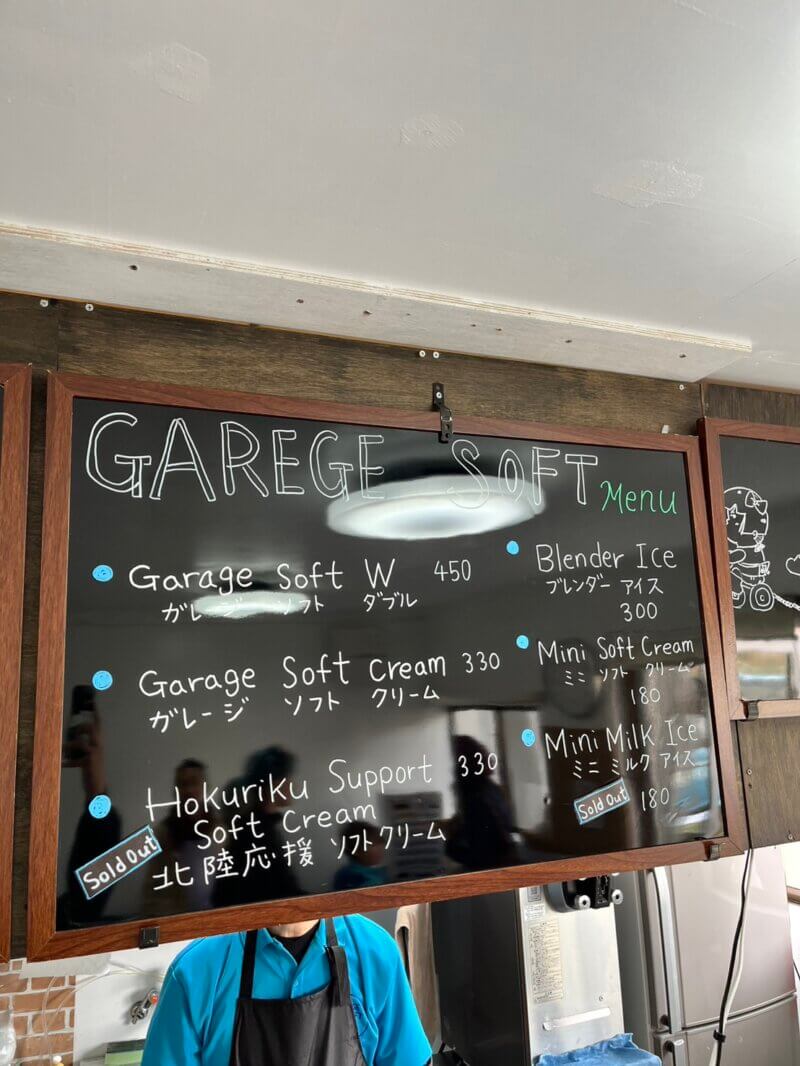 GAREGE SOFT Menu
Garage Soft W 450
ガレージ ソフト ダブル
Garage Soft Cream 330
ガレージ ソフト クリーム
Hokuriku Support 330
Soft Cream
Sold Out
北陸応援 ソフトクリーム
Blender Ice
ブレンダー アイス
300
Mini Soft Cream
ミニ ソフト クリーム
180
Mini Milk Ice
ミニ ミルク アイス
Sold Out 180